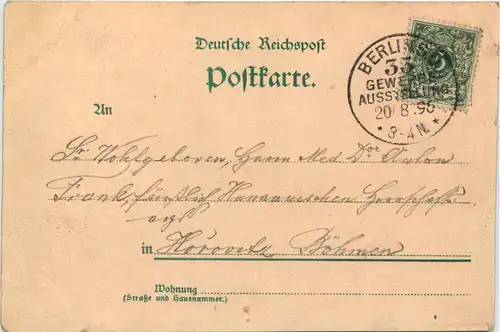 Deutsche Reichspost
Postkarte.
BERLIN S.
33
GEWERBE
AUSSTELLUNG
20/8.96
* 3-4 N. *
An
Sr. Wohlgeboren, Herrn Med Dor Anton
Frank, fürstlich Hanauischen Herrschafts-
in Horovitz Böhmen
Wohnung
(Straße und Hausnummer.)